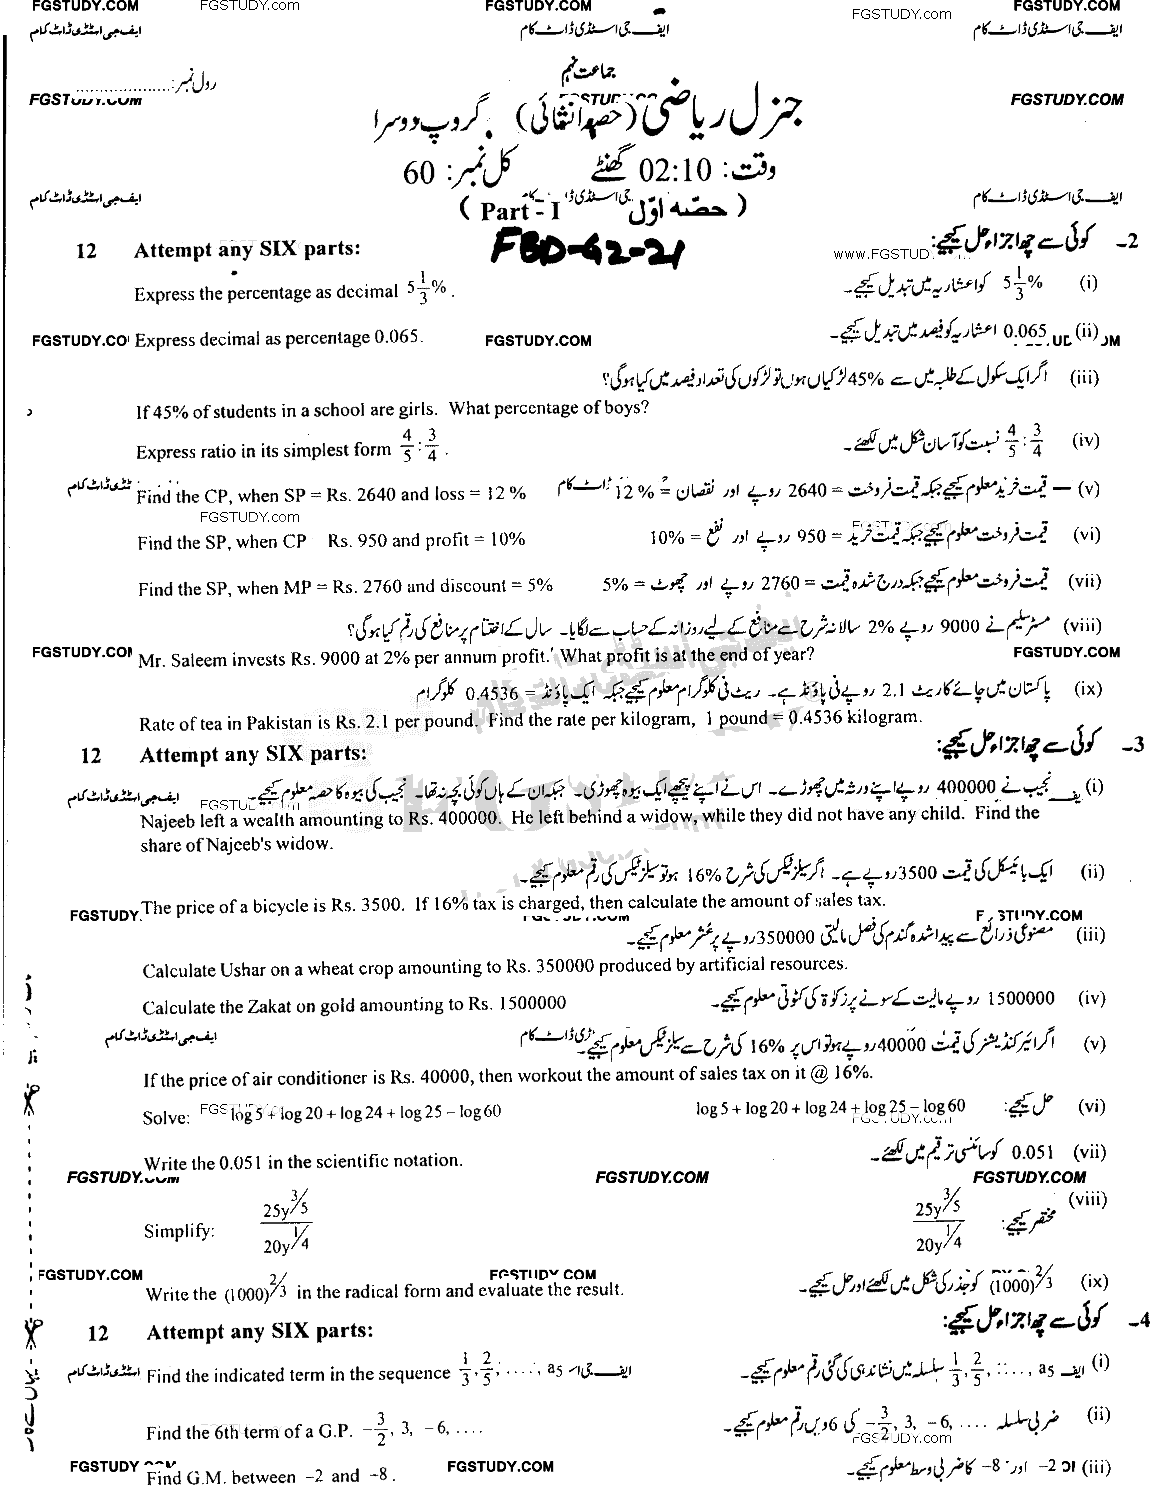 FGSTUDY.COM FGSTUDY.com FGSTUDY.COM FGSTUDY.com FGSTUDY.COM
ایف جی اسٹڈی ڈاٹ کام ایف جی اسٹڈی ڈاٹ کام ایف جی اسٹڈی ڈاٹ کام
جماعت نہم
رول نمبر:....................
FGSTUDY.COM FGSTUDY.COM
جنرل ریاضی (حصہ انشائی) گروپ دوسرا
وقت: 02:10 گھنٹے کل نمبر: 60
ایف جی اسٹڈی ڈاٹ کام جی اسٹڈی ڈاٹ کام ایف جی اسٹڈی ڈاٹ کام
(حصّہ اوّل Part - I)
FBD-G2-21
2- کوئی سے چھ اجزاء حل کیجیے: 12 Attempt any SIX parts:
www.FGSTUD
(i) 5 1/3 % کو اعشاریہ میں تبدیل کیجیے۔ Express the percentage as decimal 5 1/3 % .
(ii) 0.065 اعشاریہ کو فیصد میں تبدیل کیجیے۔ Express decimal as percentage 0.065.
FGSTUDY.CO FGSTUDY.COM
(iii) اگر ایک سکول کے طلبہ میں سے 45% لڑکیاں ہوں تو لڑکوں کی تعداد فیصد میں کیا ہوگی؟
If 45% of students in a school are girls. What percentage of boys?
(iv) 4/5 : 3/4 نسبت کو آسان شکل میں لکھئے۔ Express ratio in its simplest form 4/5 : 3/4 .
(v) قیمت خرید معلوم کیجیے جبکہ قیمت فروخت = 2640 روپے اور نقصان = 12% Find the CP, when SP = Rs. 2640 and loss = 12 %
FGSTUDY.com
(vi) قیمت فروخت معلوم کیجیے جبکہ قیمت خرید = 950 روپے اور نفع = 10% Find the SP, when CP Rs. 950 and profit = 10%
(vii) قیمت فروخت معلوم کیجیے جبکہ درج شدہ قیمت = 2760 روپے اور چھوٹ = 5% Find the SP, when MP = Rs. 2760 and discount = 5%
(viii) مسٹر سلیم نے 9000 روپے 2% سالانہ شرح سے منافع کے لیے روزانہ کے حساب سے لگایا۔ سال کے اختتام پر منافع کی رقم کیا ہوگی؟
FGSTUDY.COM Mr. Saleem invests Rs. 9000 at 2% per annum profit. What profit is at the end of year? FGSTUDY.COM
(ix) پاکستان میں چائے کا ریٹ 2.1 روپے فی پاؤنڈ ہے۔ ریٹ فی کلوگرام معلوم کیجیے جبکہ ایک پاؤنڈ = 0.4536 کلوگرام
Rate of tea in Pakistan is Rs. 2.1 per pound. Find the rate per kilogram, 1 pound = 0.4536 kilogram.
3- کوئی سے چھ اجزاء حل کیجیے: 12 Attempt any SIX parts:
(i) نجیب نے 400000 روپے اپنے ورثہ میں چھوڑے۔ اس نے اپنے پیچھے ایک بیوہ چھوڑی۔ جبکہ ان کے ہاں کوئی بچہ نہ تھا۔ نجیب کی بیوہ کا حصہ معلوم کیجیے۔
ایف جی اسٹڈی ڈاٹ کام
Najeeb left a wealth amounting to Rs. 400000. He left behind a widow, while they did not have any child. Find the
share of Najeeb's widow.
(ii) ایک بائیسکل کی قیمت 3500 روپے ہے۔ اگر سیلز ٹیکس کی شرح 16% ہو تو سیلز ٹیکس کی رقم معلوم کیجیے۔
FGSTUDY. The price of a bicycle is Rs. 3500. If 16% tax is charged, then calculate the amount of sales tax.
(iii) مصنوعی ذرائع سے پیدا شدہ گندم کی فصل مالیتی 350000 روپے پر عشر معلوم کیجیے۔
Calculate Ushar on a wheat crop amounting to Rs. 350000 produced by artificial resources.
(iv) 1500000 روپے مالیت کے سونے پر زکوٰۃ کی کٹوتی معلوم کیجیے۔ Calculate the Zakat on gold amounting to Rs. 1500000
(v) اگر ائیر کنڈیشنر کی قیمت 40000 روپے ہو تو اس پر 16% کی شرح سے سیلز ٹیکس معلوم کیجیے۔
ایف جی اسٹڈی ڈاٹ کام
If the price of air conditioner is Rs. 40000, then workout the amount of sales tax on it @ 16%.
(vi) حل کیجیے: log 5 + log 20 + log 24 + log 25 – log 60 Solve: log 5 + log 20 + log 24 + log 25 – log 60
(vii) 0.051 کو سائنسی ترقیم میں لکھئے۔ Write the 0.051 in the scientific notation.
FGSTUDY.COM FGSTUDY.COM FGSTUDY.COM
(viii) مختصر کیجیے: 25y^3/5 / 20y^1/4 Simplify: 25y^3/5 / 20y^1/4
FGSTUDY.COM FGSTUDY.COM
(ix) (1000)^2/3 کو جذر کی شکل میں لکھئے اور حل کیجیے۔ Write the (1000)^2/3 in the radical form and evaluate the result.
4- کوئی سے چھ اجزاء حل کیجیے: 12 Attempt any SIX parts:
(i) 1/3, 2/5, ...., a5 سلسلہ میں نشاندہی کی گئی رقم معلوم کیجیے۔ Find the indicated term in the sequence 1/3, 2/5, ....., a5
(ii) ضربی سلسلہ –3/2, 3, –6, .... کی 6 ویں رقم معلوم کیجیے۔ Find the 6th term of a G.P. –3/2, 3, –6, ....
FGSTUDY.com
FGSTUDY FGSTUDY.COM
(iii) –2 اور –8 کا ضربی وسط معلوم کیجیے۔ Find G.M. between –2 and –8 .